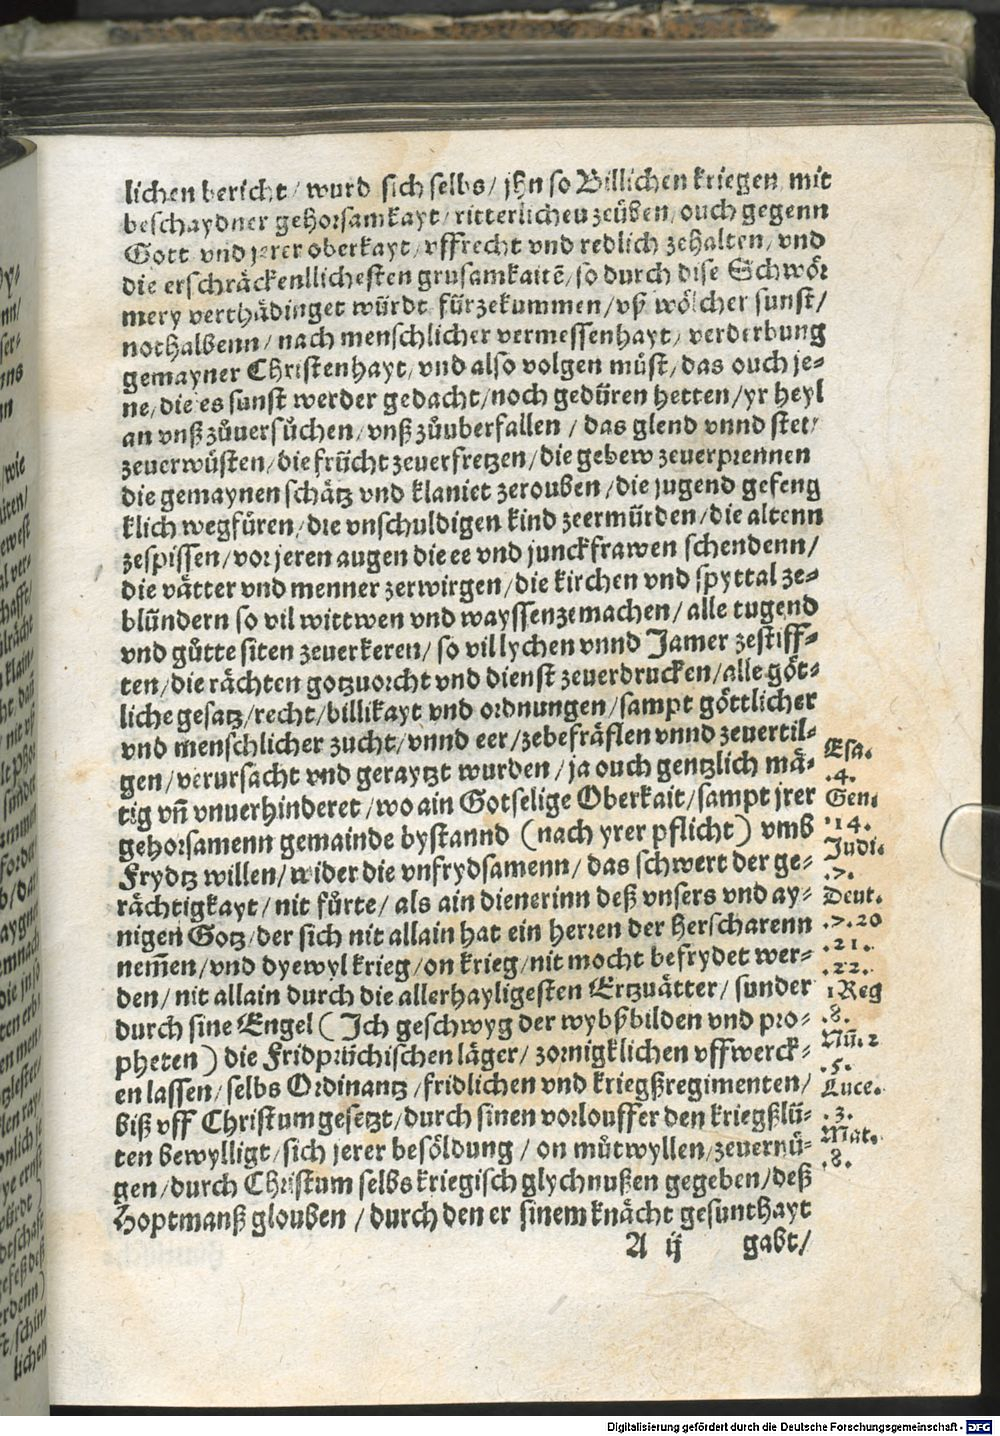 lichen bericht / wurd sich selbs / jhn so Billichen kriegen mit
beschaydner gehorsamkayt / ritterlichen zeüben / ouch gegenn
Gott vnd jrer oberkayt / vffrecht vnd redlich zehalten / vnd
die erschräckenllichesten grusamkaitē / so durch dise Schwör
mery verthädinget würdt fürzekummen / vß wölcher sunst /
nothalbenn / nach menschlicher vermessenhayt / verderbung
gemayner Christenhayt / vnd also volgen müst / das ouch je⸗
ne / die es sunst werder gedacht / noch gedüren hetten / yr heyl
an vnß zůuersůchen / vnß zůuberfallen / das glend vnnd stet /
zeuerwüsten / die frücht zeuerfretzen / die gebew zeuerprennen
die gemaynen schätz vnd klaniet zerouben / die jugend gefeng
klich wegfüren / die vnschuldigen kind zeermürden / die altenn
zespissen / vor jeren augen die ee vnd junckfrawen schendenn /
die vätter vnd menner zerwirgen / die kirchen vnd spyttal ze⸗
blündern so vil wittwen vnd wayssen zemachen / alle tugend
vnd gůtte siten zeuerkeren / so vil lychen vnnd Jamer zestiff⸗
ten / die rächten gotzuorcht vnd dienst zeuerdrucken / alle göt⸗
liche gesatz / recht / billikayt vnd ordnungen / sampt göttlicher
vnd menschlicher zucht / vnnd eer / zebefräflen vnnd zeuertil⸗
gen / verursacht vnd geraytzt wurden / ja ouch gentzlich mä⸗
tig vn̄ vnuerhinderet / wo ain Gotselige Oberkait / sampt jrer
gehorsamenn gemainde bystannd (nach yrer pflicht) vmb
Frydtz willen / wider die vnfrydsamenn / das schwert der ge⸗
rächtigkayt / nit fůrte / als ain dienerinn deß vnsers vnd ay⸗
nigen Gotz / der sich nit allain hat ein herren der Herscharenn
nem̄en / vnd dyewyl krieg / on krieg / nit mocht befrydet wer⸗
den / nit allain durch die allerhayligesten Ertzuätter / sunder
durch sine Engel (Ich geschwyg der wybßbilden vnd pro⸗
pheten) die Fridprüchischen läger / zornigklichen vffwerck⸗
en lassen / selbs Ordinantz / fridlichen vnd kriegßregimenten /
biß vff Christum gesetzt / durch sinen vorlouffer den kriegßlü⸗
ten bewylligt / sich jerer besöldung / on můtwyllen / zeuernü⸗
gen / durch Christum selbs kriegisch glychnußen gegeben / deß
Hoptmanß glouben / durch den er sinem knächt gesunthayt
A ij gabt /
Esa.
.4.
Gen.
.14.
Judi.
.7.
Deut.
.7.20
.21.
.22.
1 Reg
.8.
Nū. 2
.5.
Luce.
.3.
Mat.
.8.
Digitalisierung gefördert durch die Deutsche Forschungsgemeinschaft - DFG